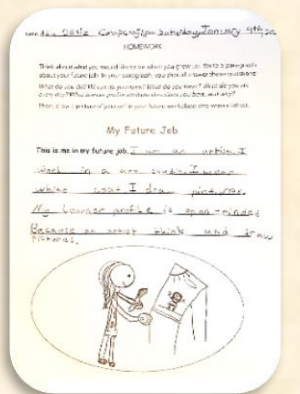 Saturday January 9th,20
HOMEWORK
Think about what you would like to be when you grow up. Write a paragraph
about your future job. In your paragraph, you should answer these questions:
What do you do? Where do you work? What do you wear? What do you use
every day? What learner profile attribute describes you best, and why?
Then, draw a picture of you at in your future workplace and wear clothes.
My Future Job
This is me in my future job. I am an artist. I
work in a art studio. I wear
white coat. I draw pictures.
My learner profile is open-minded
Because an artist think and draw
pictures.